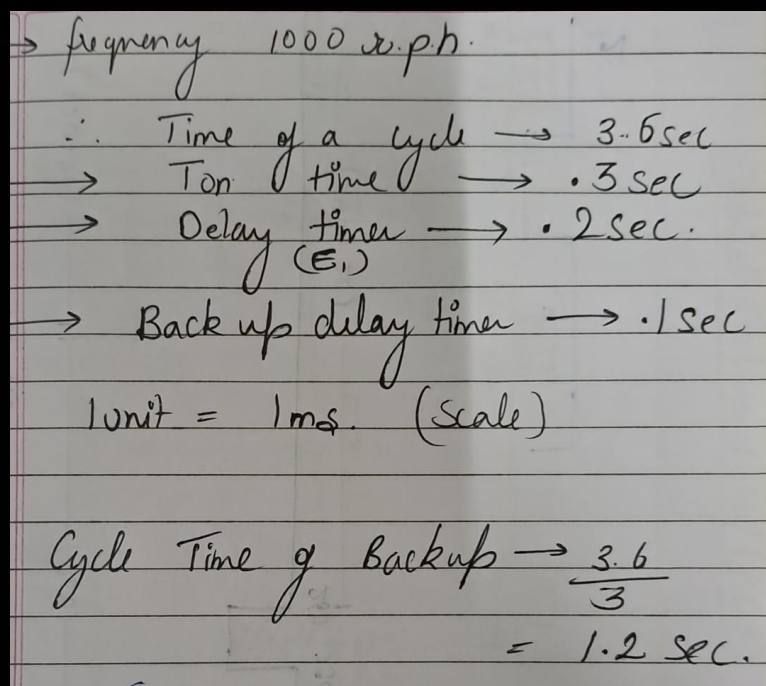 → frequency 1000 r.p.h.
∴ Time of a cycle → 3.6 sec
→ Ton time → .3 sec
→ Delay timer → .2 sec.
(E₁)
→ Back up delay timer → .1 sec
1 unit = 1 ms. (Scale)
Cycle Time of Backup → 3.6
3
= 1.2 sec.